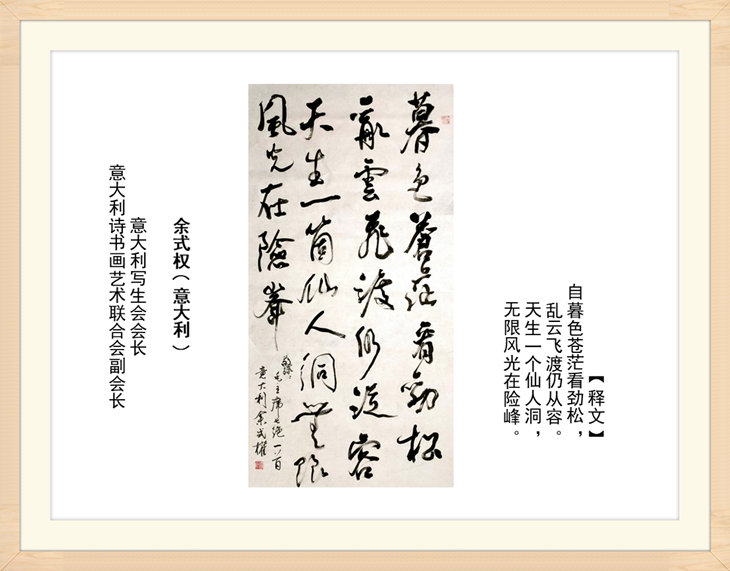 【释文】
自暮色苍茫看劲松，
乱云飞渡仍从容。
天生一个仙人洞，
无限风光在险峰。
暮色蒼茫看勁松
亂雲飛渡仍從容
天生一箇仙人洞無限
風光在險峯
毛主席七绝一首
意大利余式權
余式权（意大利）
意大利写生会会长
意大利诗书画艺术联合会副会长